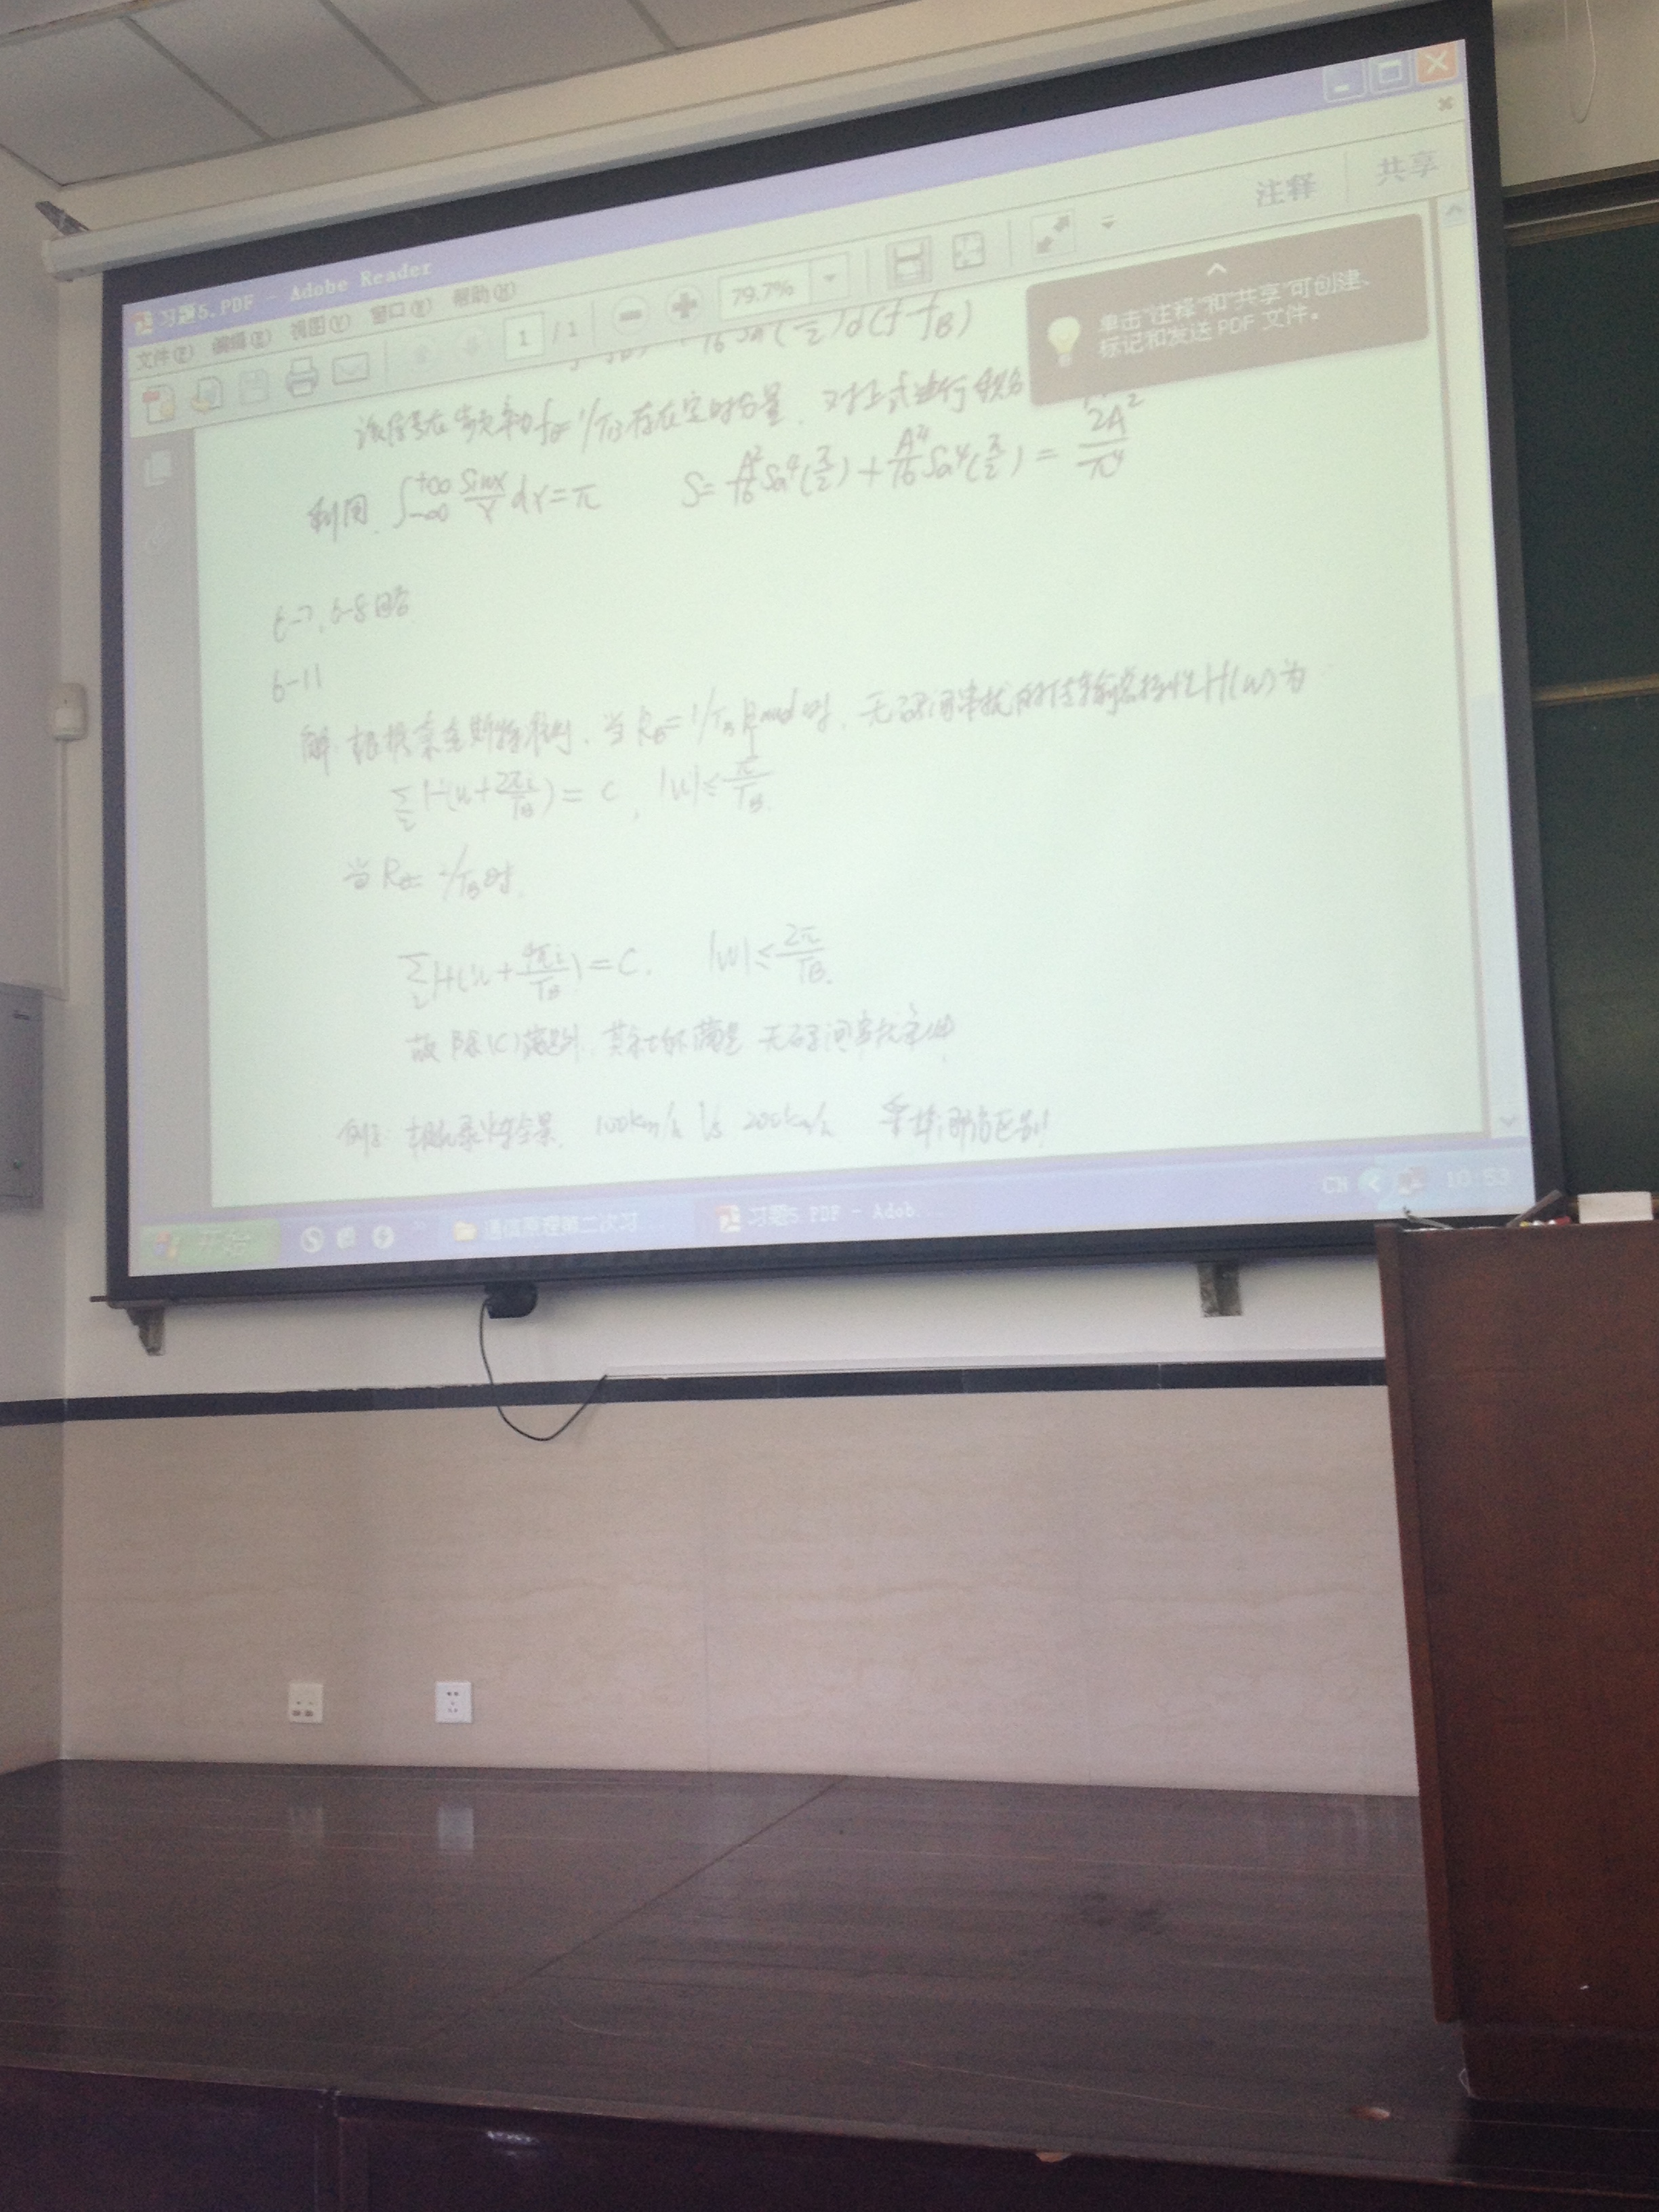 习题5.PDF - Adobe Reader
文件(F) 编辑(E) 视图(V) 窗口(W) 帮助(H)
注释 共享
1 / 1 79.7%
单击"注释"和"共享"可创建、
标记和发送 PDF 文件。
16 Sa(π/2)δ(f-fB)
该信号在频率为fB=1/TB存在定时分量. 对上式进行积分
利用. ∫_{-∞}^{+∞} sinx/x dx=π S=A²/16 Sa⁴(π/2)+A⁴/16 Sa⁴(π/2)=2A²/π⁴
6-7, 6-8略
6-11
解: 根据奈奎斯特准则, 当RB=1/TB 时, 无码间串扰的传输总特性H(ω)为
Σ H(ω+2πi/TB)=C, |ω|≤π/TB.
当RB=2/TB时.
Σ H(ω+4πi/TB)=C. |ω|≤2π/TB.
故除(C)满足外, 其余均不满足无码间串扰条件
100km/h 200km/h 区别
开始 通信原理第二次习 习题5.PDF - Adob.. CH 10:53